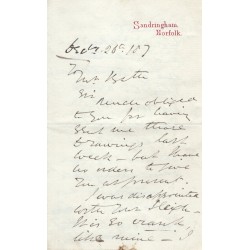 Sandringham,
Norfolk.
Oct 28th 187
To Mr Betts
Sir
obliged
to you for having
sent me those
drawings last
week – but I have
no orders to give
you at present.
I was disappointed
with
It is so
like mine –